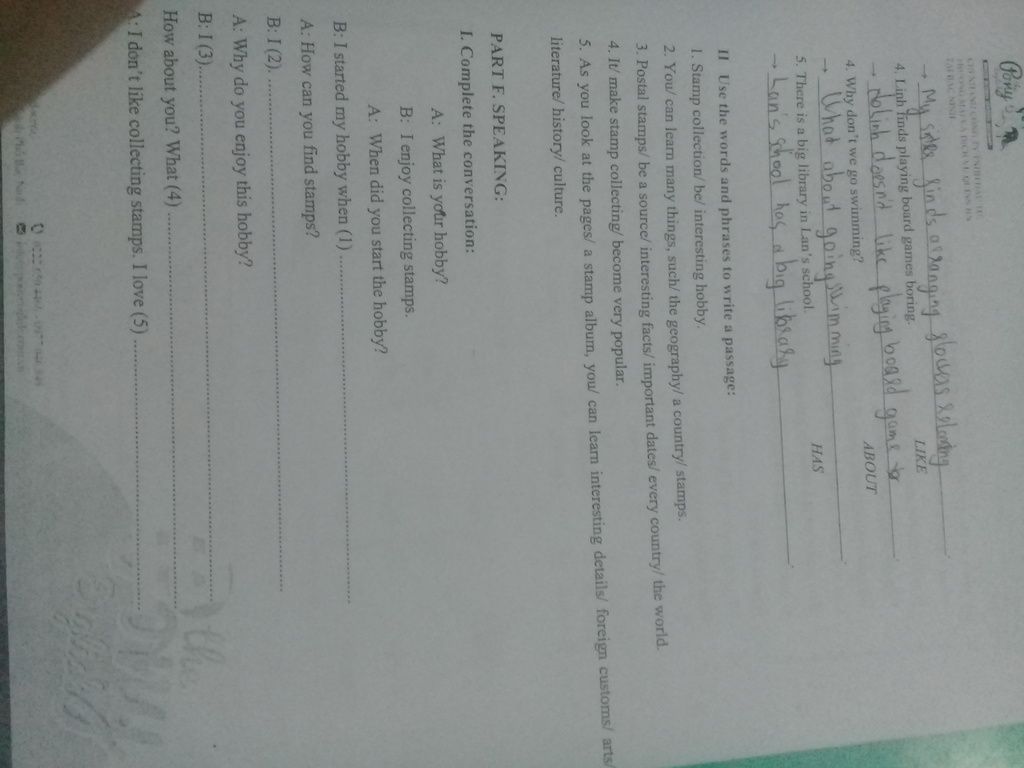 → My finds arranging flowers
LIKE
4. Linh funds playing board games borting.
→ Linh doesn't like playing board game
4. Why don't we go swimming?
ABOUT
→ What about going swimming
5. There is a big library in Lan's school.
HAS
→ Lan's school has a big library
II Use the words and phrases to write a passage:
1. Stamp collection/ be/ interesting hobby.
2. You/ can learn many things, such/ the geography/ a country/ stamps.
3. Postal stamps/ be a source/ interesting facts/ important dates/ every country/ the world.
4. It/ make stamp collecting/ become very popular.
5. As you look at the pages/ a stamp album, you/ can learn interesting details/ foreign customs/ arts/
literature/ history/ culture.
PART F. SPEAKING:
I. Complete the conversation:
A: What is your hobby?
B: I enjoy collecting stamps.
A: When did you start the hobby?
B: I started my hobby when (1)
A: How can you find stamps?
B: I (2)
A: Why do you enjoy this hobby?
B: I (3)
How about you? What (4)
A: I don't like collecting stamps. I love (5)